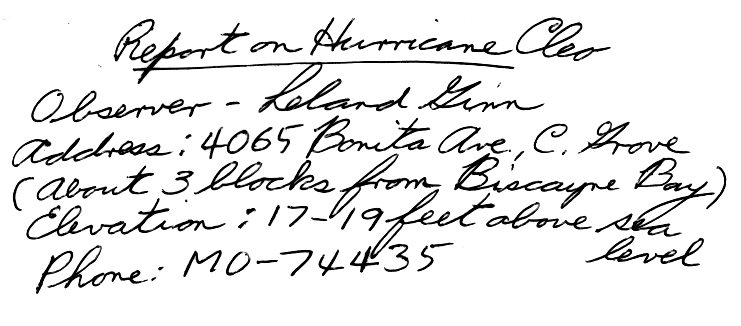 Report on Hurricane Cleo
Observer - Leland Ginn
Address: 4065 Bonita Ave., C. Grove
(about 3 blocks from Biscayne Bay)
Elevation: 17-19 feet above sea
level
Phone: MO-74435